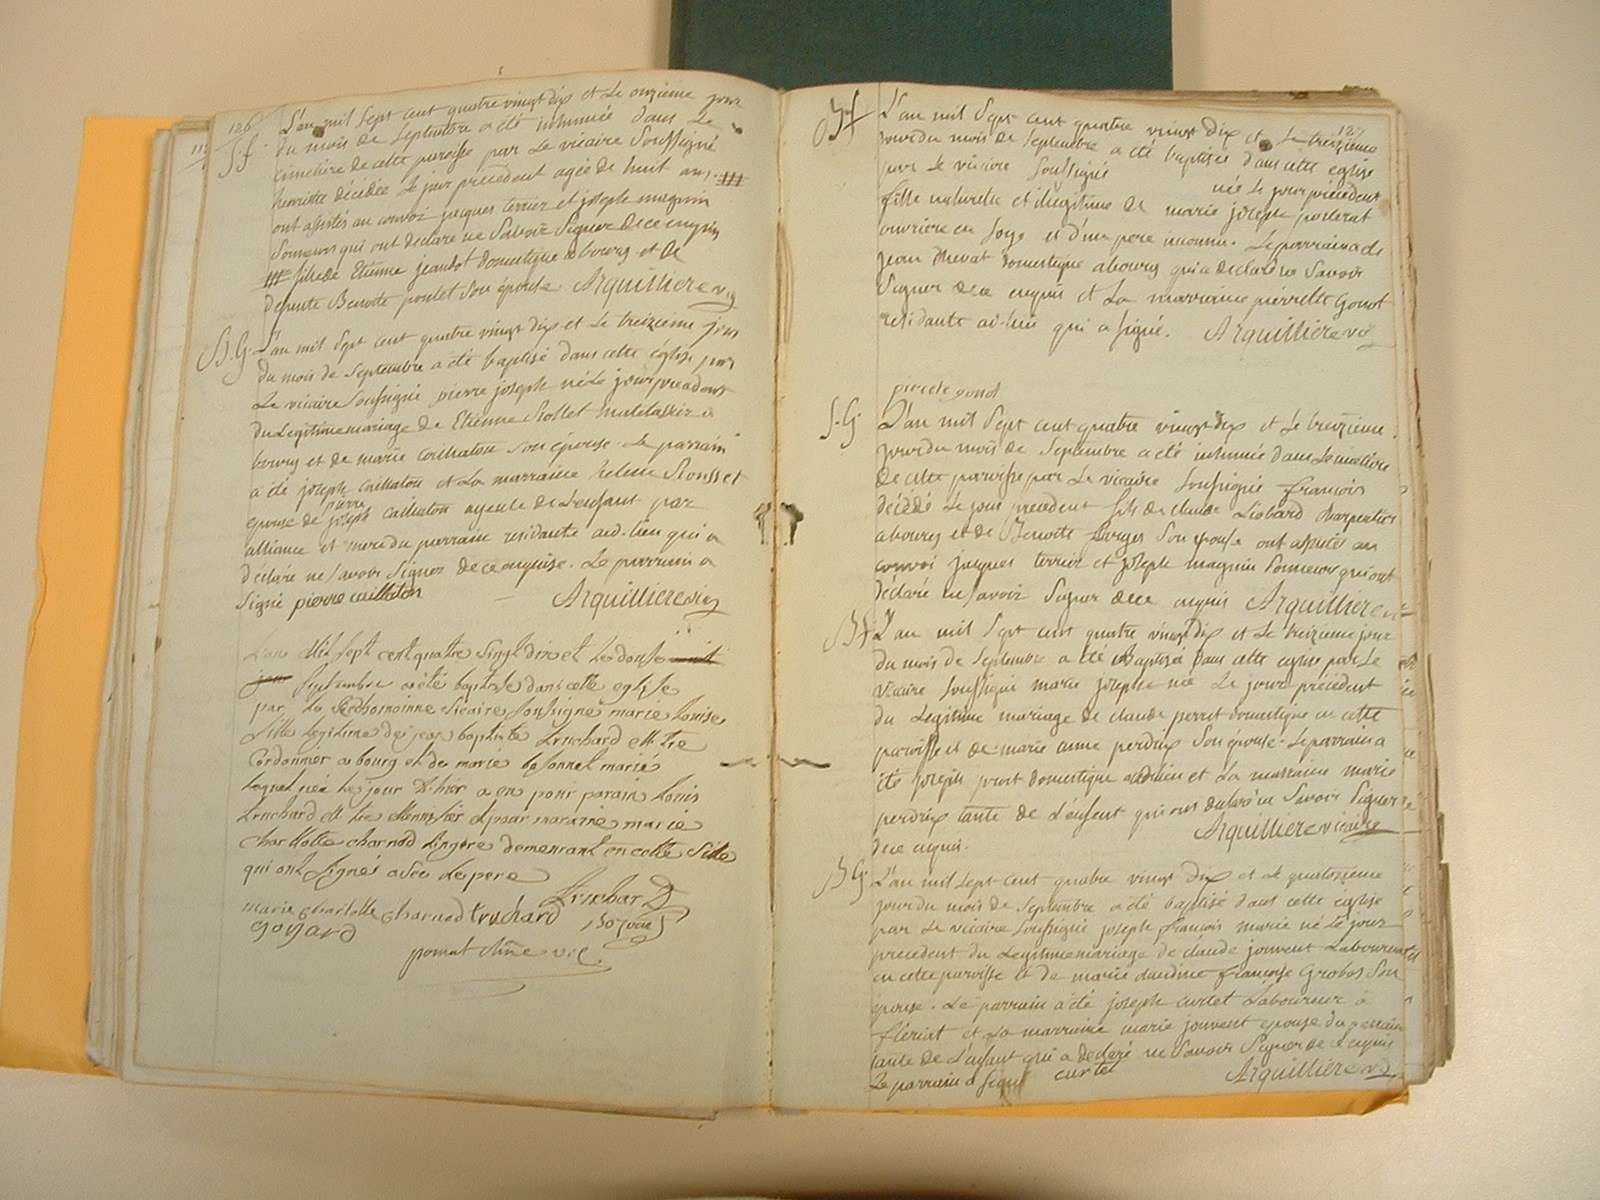 126
S.f.
L'an mil Sept cent quatre vingt dix et Le onzieme jour
du mois de Septembre a été inhumée dans Le
cimetiere de cette paroisse par Le vicaire Soussigné
henriete décédée Le jour précedent agée de huit ans
ont assistés au convoi jacques terrier et joseph magnin
Sonneurs qui ont declaré ne Savoir Signer de ce enquis
fille de Etienne jeandot domestique a bourg et de
defunte Benoite poulet Son épouse Arquilliere vic
B.G.
L'an mil Sept cent quatre vingt dix et Le treizieme jour
du mois de Septembre a été baptisé dans cette église par
Le vicaire Soussigné pierre joseph né Le jour précedent
du Légitime mariage de Etienne Rollet matelassier a
bourg et de marie cailhaton Son épouse. Le parrain
a été joseph cailhaton et La marraine helene Rousset
epouse de joseph cailhaton ayeule de L'enfant par
pierre
alliance et mere du parrain residante aud. lieu qui a
déclaré ne Savoir Signer de ce enquise. Le parrain a
Signé pierre cailhaton Arquilliere vic
L'an Mil sept cent quatre vingt dix et le douse
Septembre a été baptisée dans cette eglise
par Le vicaire Soussigné marie Louise
fille legitime de jean baptiste truchard
Cordonnier a bourg et de marie
née le jour d'hier a eu pour parain Louis
truchard et pour maraine marie
charlotte charnod lingere demeurant en cette ville
qui ont Signés avec le pere
truchard
marie charlotte charnod truchard
goyard
vic.
127
B.f
L'an mil Sept cent quatre vingt dix et Le treizieme
jour du mois de Septembre a été baptisée dans cette église
par Le vicaire Soussigné née Le jour précedent
fille naturelle et illegitime de marie joseph
ouvriere en Soye et d'un pere inconnu. Le parrain a été
jean domestique a bourg qui a déclaré ne Savoir
Signer de ce enquis et La marraine pierrette Gonot
residante au-lieu qui a signé. Arquilliere vic
pierete gonot
S.G
L'an mil Sept cent quatre vingt dix et Le treizieme
jour du mois de Septembre a été inhumé dans Le cimetiere
de cette paroisse par Le vicaire Soussigné françois
décédé Le jour précedent fils de claude Liobard charpentier
a bourg et de Benoite Son épouse ont assistés au
convoi jacques terrier et joseph magnin Sonneurs qui ont
déclaré ne Savoir Signer de ce enquis Arquilliere vic
B.f.
L'an mil Sept cent quatre vingt dix et Le treizieme jour
du mois de Septembre a été Baptisée dans cette eglise par Le
vicaire Soussigné marie josephe née Le jour précedent
du Legitime mariage de claude perret domestique en cette
paroisse et de marie anne perdrix Son épouse. Le parrain a
été joseph domestique audit lieu et La marraine marie
perdrix tante de L'enfant qui ont declaré ne Savoir Signer
de ce enquis. Arquilliere vicaire
B.G.
L'an mil sept cent quatre vingt dix et Le quatorzieme
jour du mois de Septembre a été baptisé dans cette église
par Le vicaire Soussigné joseph françois marie né Le jour
precedent du Legitime mariage de claude jouvent Laboureur
en cette paroisse et de marie claudine françoise Grobas Son
épouse. Le parrain a été joseph curtet Laboureur à
fleriat et La marraine marie jouvent epouse du parrain
tante de L'enfant qui a declaré ne Savoir Signer de ce enquis
Le parrain a signé curtet Arquilliere vic